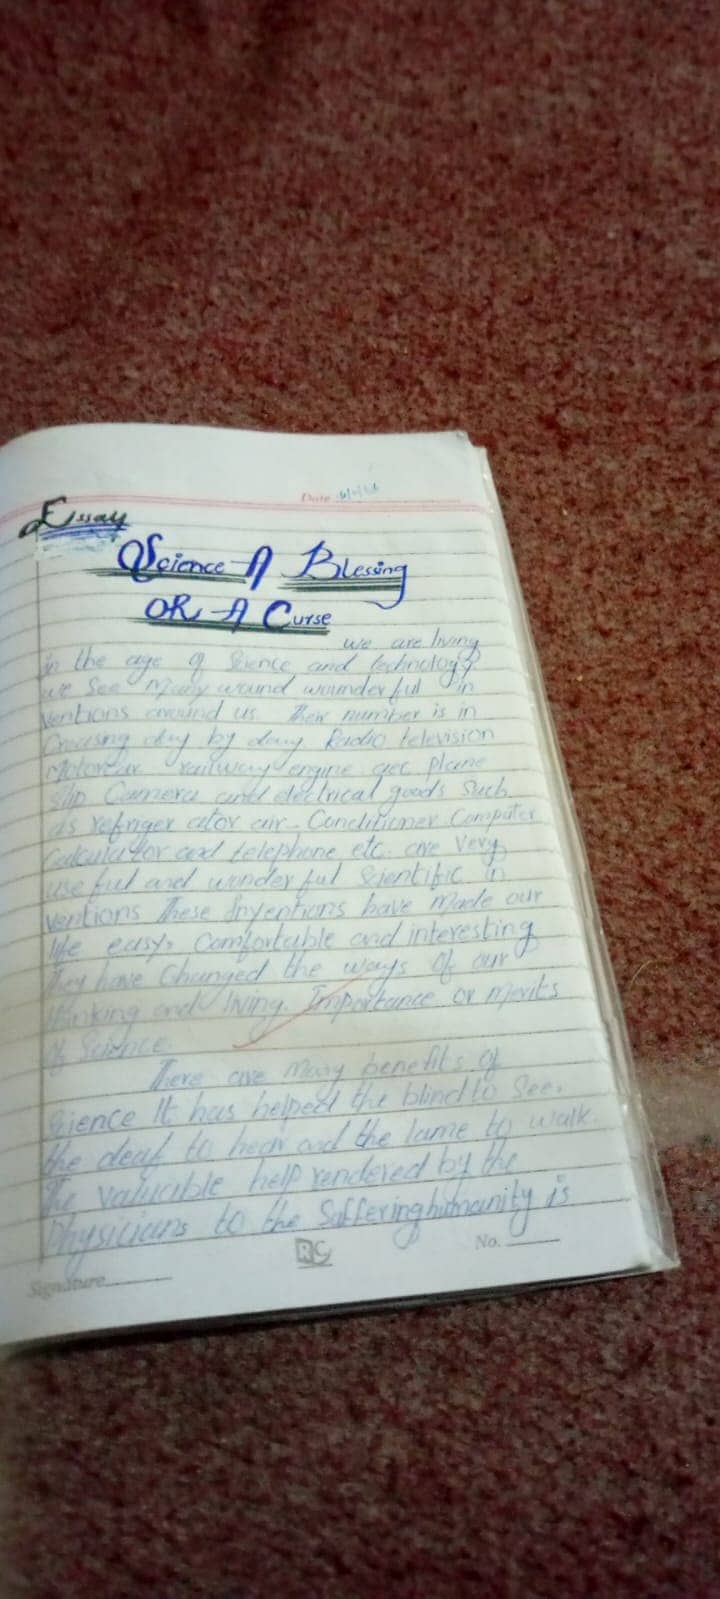 Date
Essay
Science A Blessing
OR A Curse
we are living
in the age of Science and technology
we See Many wound wounder ful in
ventions around us. Their number is in
Creasing day by day Radio television
Motorcar railway engine plane
Ship Camera and electrical goods Such
as refriger ator air-Conditioner Computer
Calculator and telephone etc. are Very
use ful and wonder ful Scientific in
ventions These Inventions have made our
life easy, Comfortable and interesting
They have Changed the ways Of our
thinking and living. Importance or Merits
Of Science.
There are many benefits of
Science It has helped the blind to See.
the deaf to hear and the lame to walk.
The valuable help rendered by the
Physicians to the Suffering humanity is
RC
No.
Signature